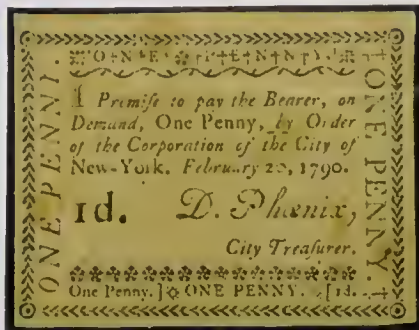 O N E P E N N Y.
ONE PENNY.
I Promise to pay the Bearer, on
Demand, One Penny, by Order
of the Corporation of the City of
New-York. February 20, 1790.
1d. D. Phœnix,
City Treasurer.
One Penny. ] ONE PENNY. [ 1d.
ONE PENNY.